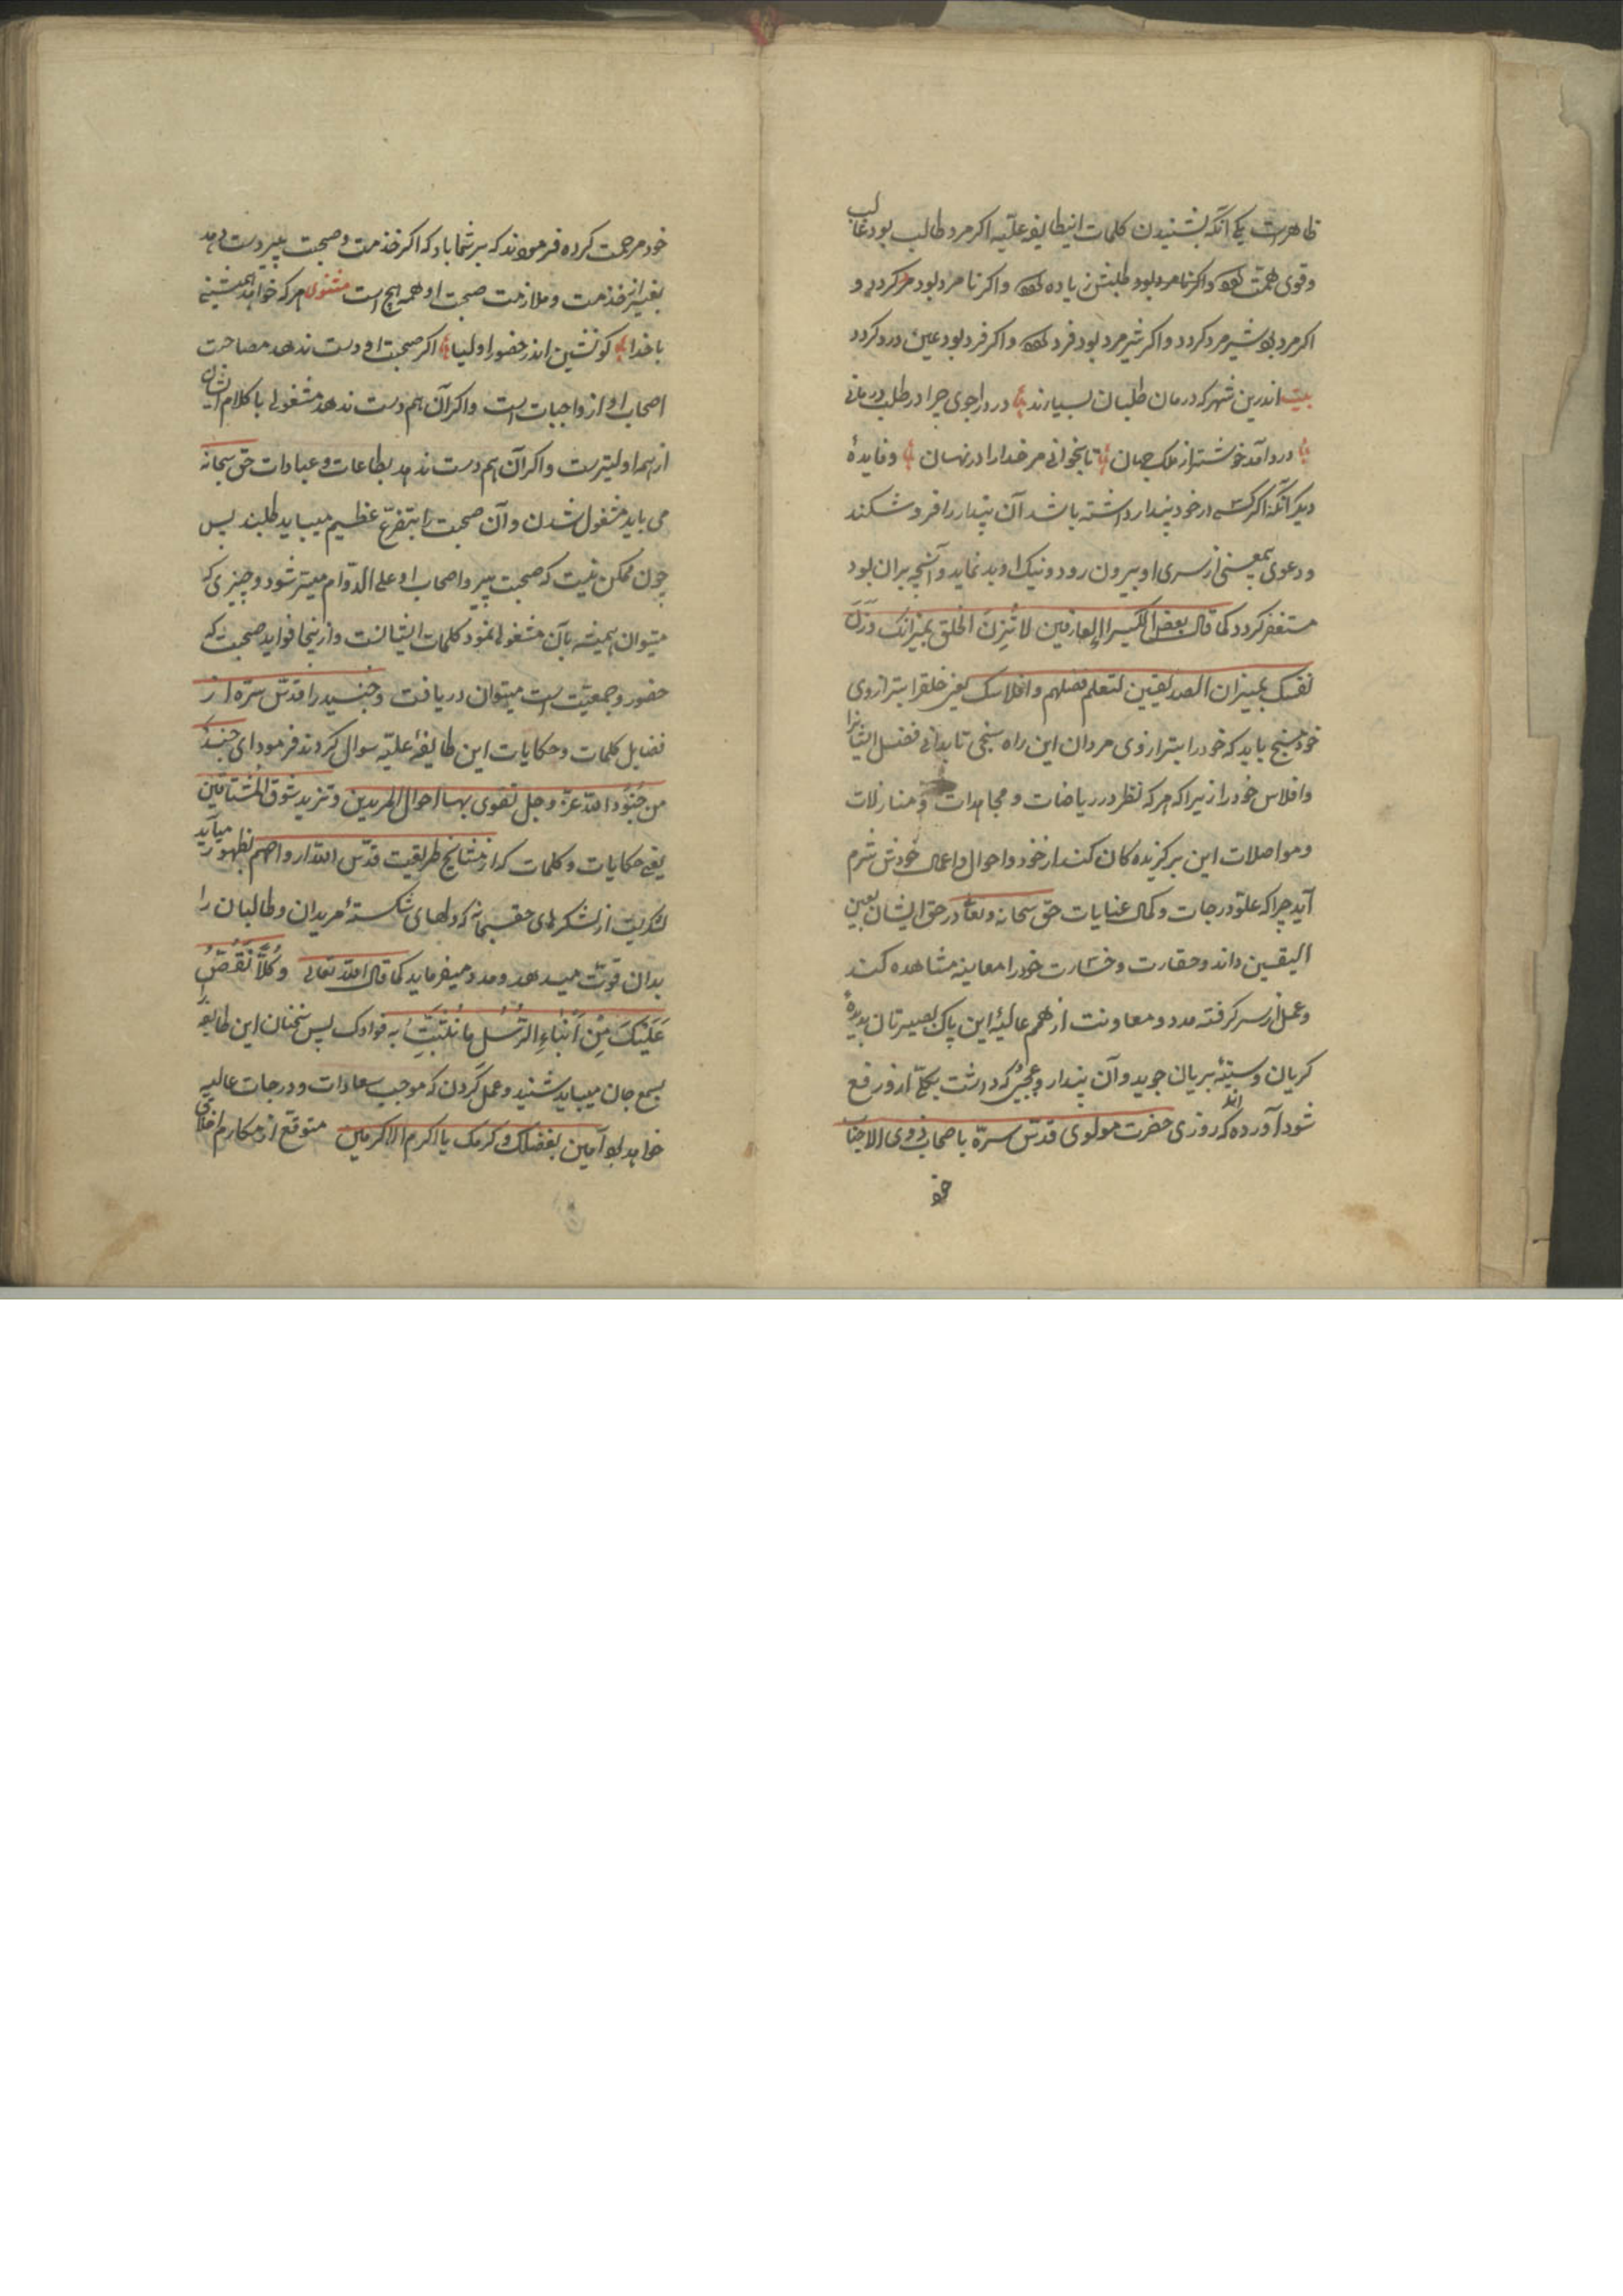 ظاهرست یکی آنکه بشنیدن کلمات اینطایفهٔ علیّه اکر مرد طالب بود غالب
وقوی همّت شود واکر نامرد بود طلبش زیاده شود واکر نامرد بود مرد کردد و
اکر مرد بود شیر مرد کردد واکر شیر مرد بود فرد شود واکر فرد بود عین درد کردد
بیت اندرین شهر که درمان طلبان بسیارند درد را جوی چرا در طلب درمانی
درد آمد خوشتر از ملک جهان تا بخوانی مر خدا را در نهان وفایدهٔ
دیکر آنکه اکر کسی در خود پندار داشته باشد آن پندار را فرو شکند
ودعوی بمعنی از سری او بیرون رود ونیک او بد نماید وآنچه بران بود
مستغفر کردد کما قال بعض الکبیر العارفین لا تزن الخلق بمیزانک وزن
نفسک بمیزان الصدیقین لتعلم فضلهم وافلاسک یعنی خلقرا بترازوی
خود مسنج باید که خود را بترازوی مردان این راه سنجی تا بدانی فضل ایشانرا
وافلاس خود را زیرا که هر که نظر در ریاضات ومجاهدات ومنازلات
ومواصلات این برکزیده کان کند از خود واحوال واعمال خودش شرم
آید چرا که علوّ درجات وکمال عنایات حق سبحانه وتعا در حق ایشان بعین
الیقین داند وحقارت وخسارت خود را معاینه مشاهده کند
وعمل از سر کرفته مدد ومعاونت از همم عالیهٔ این پاک بصیرتان بدیدهٔ
کریان وسینهٔ بریان جوید وآن پندار وعجبی که داشت بکلّی ازو رفع
شود آورده اند که روزی حضرت مولوی قدّس سرّه باصحاب ذوی الاجتباب
خود مرحمت کرده فرمودند که بر شما باد که اکر خذمت وصحبت پیر دست دهد
بغیر از خذمت وملازمت صحبت او همه هیچ است مثنوی هر که خواهد همنشینی
با خدا کو نشین اندر حضور اولیا اکر صحبت او دست ندهد مصاحبت
اصحاب او از واجبات است واکر آن هم دست ندهد مشغولی با کلام ایشان
از همه اولیترست واکر آن هم دست ندهد بطاعات وعبادات حق سبحانه
می باید مشغول شدن وآن صحبت را بتضرّع عظیم میباید طلبند پس
چون ممکن نیست که صحبت پیر واصحاب او علی الدّوام میسّر شود وچیزی که
میتوان همیشه بآن مشغولی نمود کلمات ایشانست وازینجا فواید صحبت که
حضور وجمعیّت است میتوان دریافت وجنید را قدّس سرّه از
فضایل کلمات وحکایات این طایفهٔ علیّه سوال کردند فرمود ای جند
من جنود الله عزّ وجل تقوی بها احوال المریدین وتزید شوق المشتاقین
یعنی حکایات وکلمات که از مشایخ طریقت قدّس الله ارواحهم بظهور میآید
لشکریست از لشکرهای حقسبحانه که دلهای شکستهٔ مریدان وطالبان را
بدان قوّت میدهد ومدد میفرماید کما قال الله تعالی وَکُلًّا نَقُصُّ
عَلَیْکَ مِنْ اَنْبَاءِ الرُّسُلِ مَا نُثَبِّتُ به فوادک پس سخنان این طایفه
بسمع جان میباید شنید وعمل کردن که موجب سعادات ودرجات عالیه
خواهد بود آمین بفضلک وکرمک یا اکرم الاکرمین متوقع از مکارم اخلاق